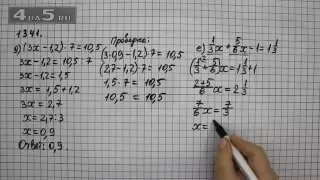 4DA5.RU
1341.
g) (3x - 1,2) · 7 = 10,5
3x - 1,2 = 10,5 : 7
3x - 1,2 = 1,5
3x = 1,5 + 1,2
3x = 2,7
x = 2,7 : 3
x = 0,9
Ответ: 0,9.
Проверка:
(3·0,9 - 1,2)·7 = 10,5
(2,7 - 1,2)·7 = 10,5
1,5 · 7 = 10,5
10,5 = 10,5
e) 1/3 x + 5/6 x - 1 = 1 1/3
(1/3 + 5/6) x = 1 1/3 + 1
2+5/6 x = 2 1/3
7/6 x = 7/3
x =